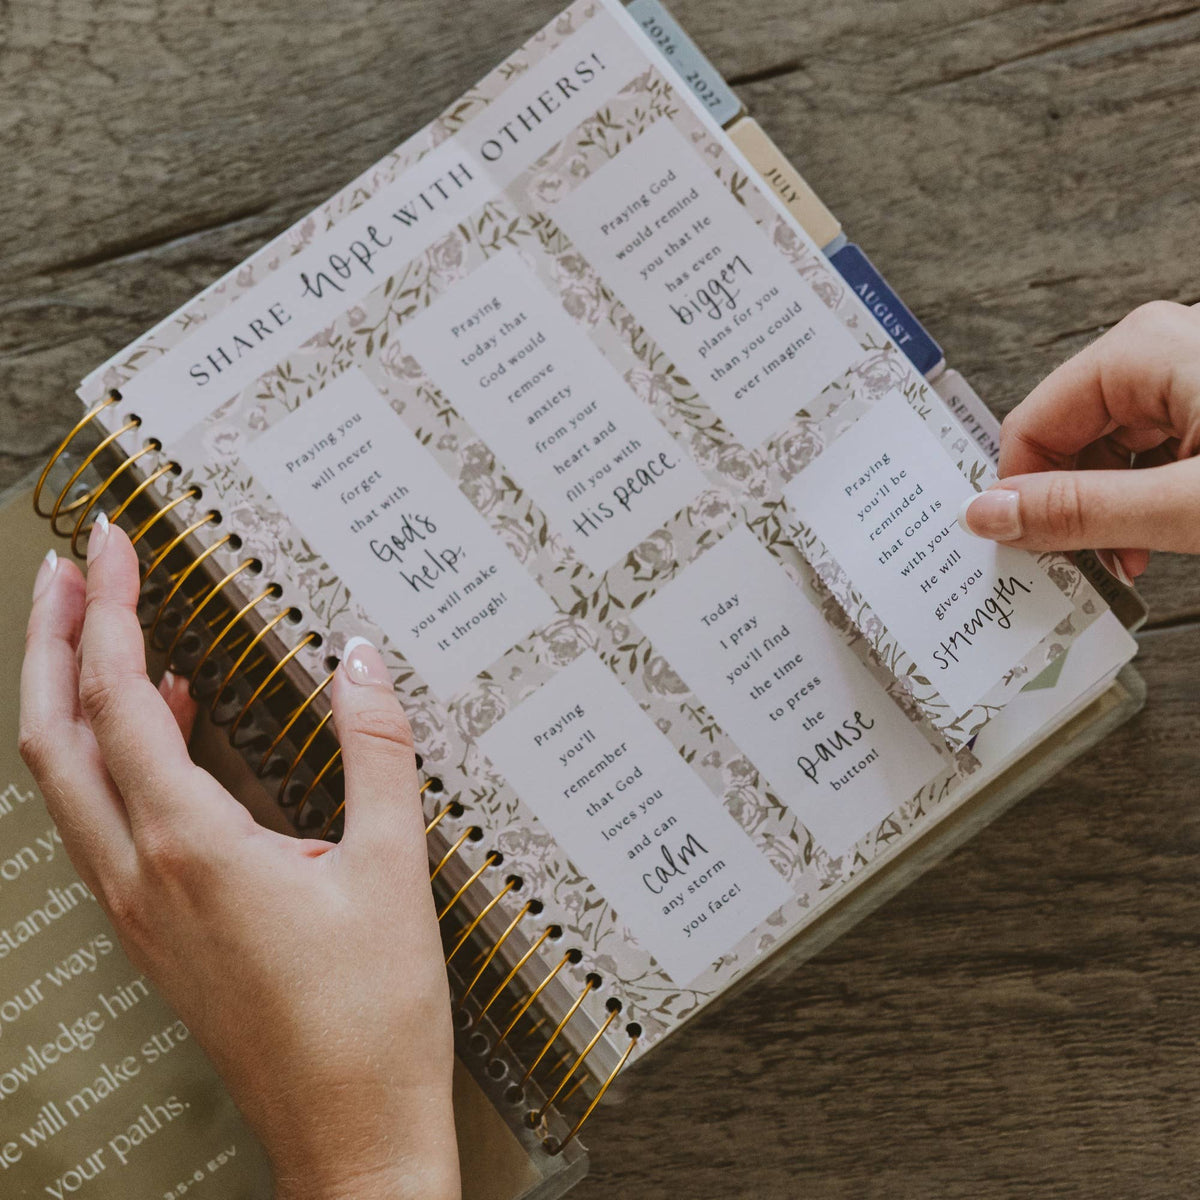 SHARE hope WITH OTHERS!
Praying you
will never
forget
that with
God's
help,
you will make
it through!
Praying
today that
God would
remove
anxiety
from your
heart and
fill you with
His peace.
Praying God
would remind
you that He
has even
bigger
plans for you
than you could
ever imagine!
Praying
you'll
remember
that God
loves you
and can
calm
any storm
you face!
Today
I pray
you'll find
the time
to press
the
pause
button!
Praying
you'll be
reminded
that God is
with you—
He will
give you
strength.
2026 – 2027
JULY
AUGUST
your ways
him
will make
your paths.
3:5-6 ESV